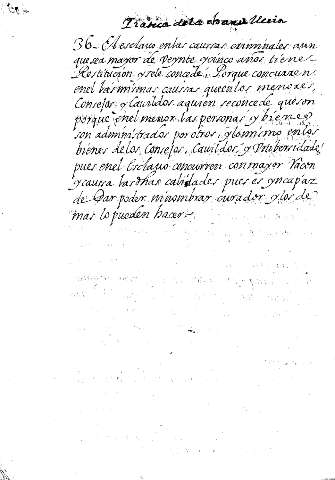 Practica de la
36- El esclavo en las causas criminales aun
que sea mayor de veynte y cinco años tiene
Restitucion, y se le concede, Porque concurren
en el las mismas causas que en los menores,
Consejos, y Cavildos a quien se concede que son
porque en el menor, las personas y bienes
son administrados por otros, y lo mismo en los
bienes de los Consejos, Cavildos, y Vniversidades
pues en el Esclavo concurren con mayor racon
y causa las dhas calidades pues es yncapaz
de Dar poder, ni nombrar curador, y los de
mas lo pueden hacer.